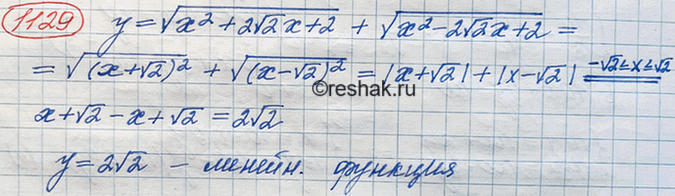 1129 y = √(x² + 2√2x + 2) + √(x² - 2√2x + 2) =
= √((x + √2)²) + √((x - √2)²) = |x + √2| + |x - √2| -√2 ≤ x ≤ √2 =
©reshak.ru
x + √2 - x + √2 = 2√2
y = 2√2 - линейн. функция